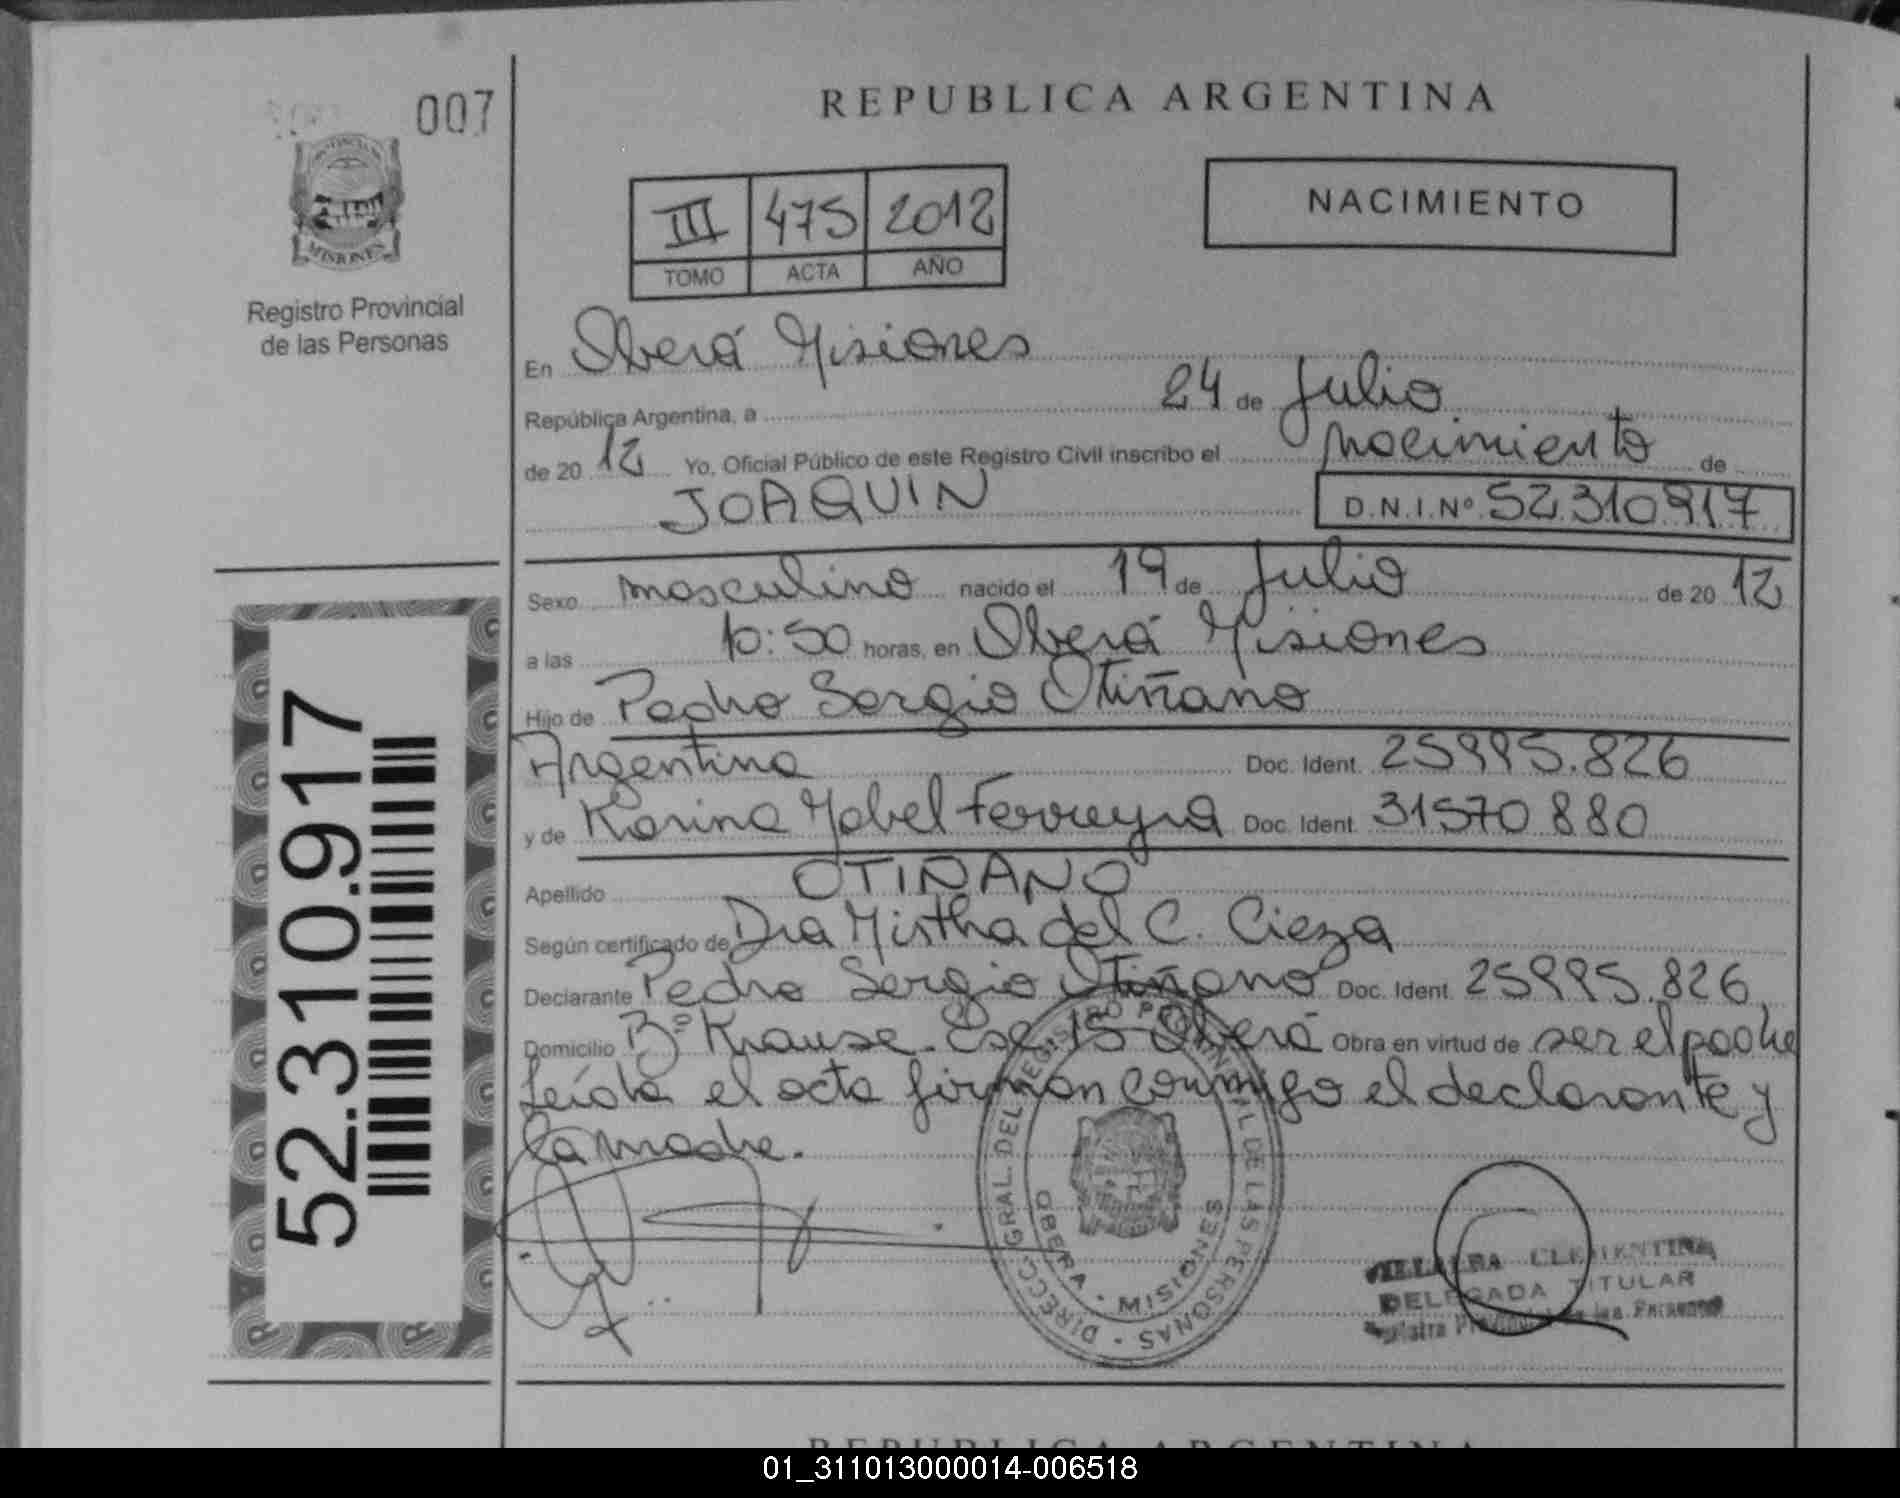 007
REPUBLICA ARGENTINA
III 475 2012
TOMO ACTA AÑO
NACIMIENTO
MISIONES
Registro Provincial
de las Personas
En Oberá Misiones
República Argentina, a 24 de Julio
de 20 12 Yo, Oficial Público de este Registro Civil inscribo el nacimiento de
JOAQUIN D.N.I.Nº 52.310.917
Sexo masculino nacido el 19 de Julio de 20 12
a las 10:50 horas, en Oberá Misiones
Hijo de Pedro Sergio Otiñano
Argentina Doc. Ident. 25995.826
y de Karina Mabel Ferreyra Doc. Ident. 31570 880
Apellido OTIÑANO
Según certificado de Dra Mirtha del C. Cieza
Declarante Pedro Sergio Otiñano Doc. Ident. 25995.826
Domicilio Bº Krause. Esc 15 Oberá Obra en virtud de ser el padre
Leída el acta firman conmigo el declarante y
la madre.
52.310.917
DIRECC. GRAL. DEL REGISTRO PROVINCIAL DE LAS PERSONAS
OBERA - MISIONES
VILLALBA CLEMENTINA
DELEGADA TITULAR
Registro Provincial de las Personas
REPUBLICA ARGENTINA
01_311013000014-006518